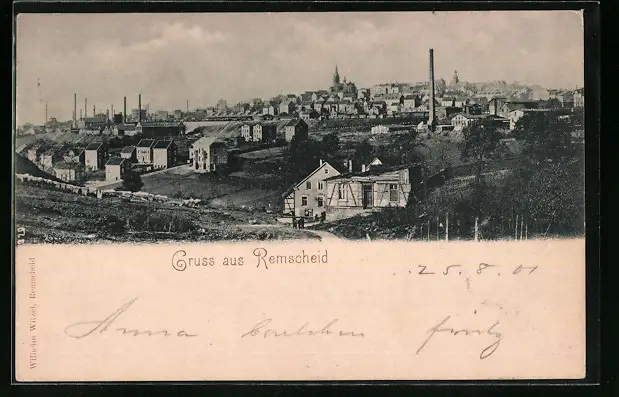 Gruss aus Remscheid
25.8.01
Anna
Wilhelm Witzel, Remscheid